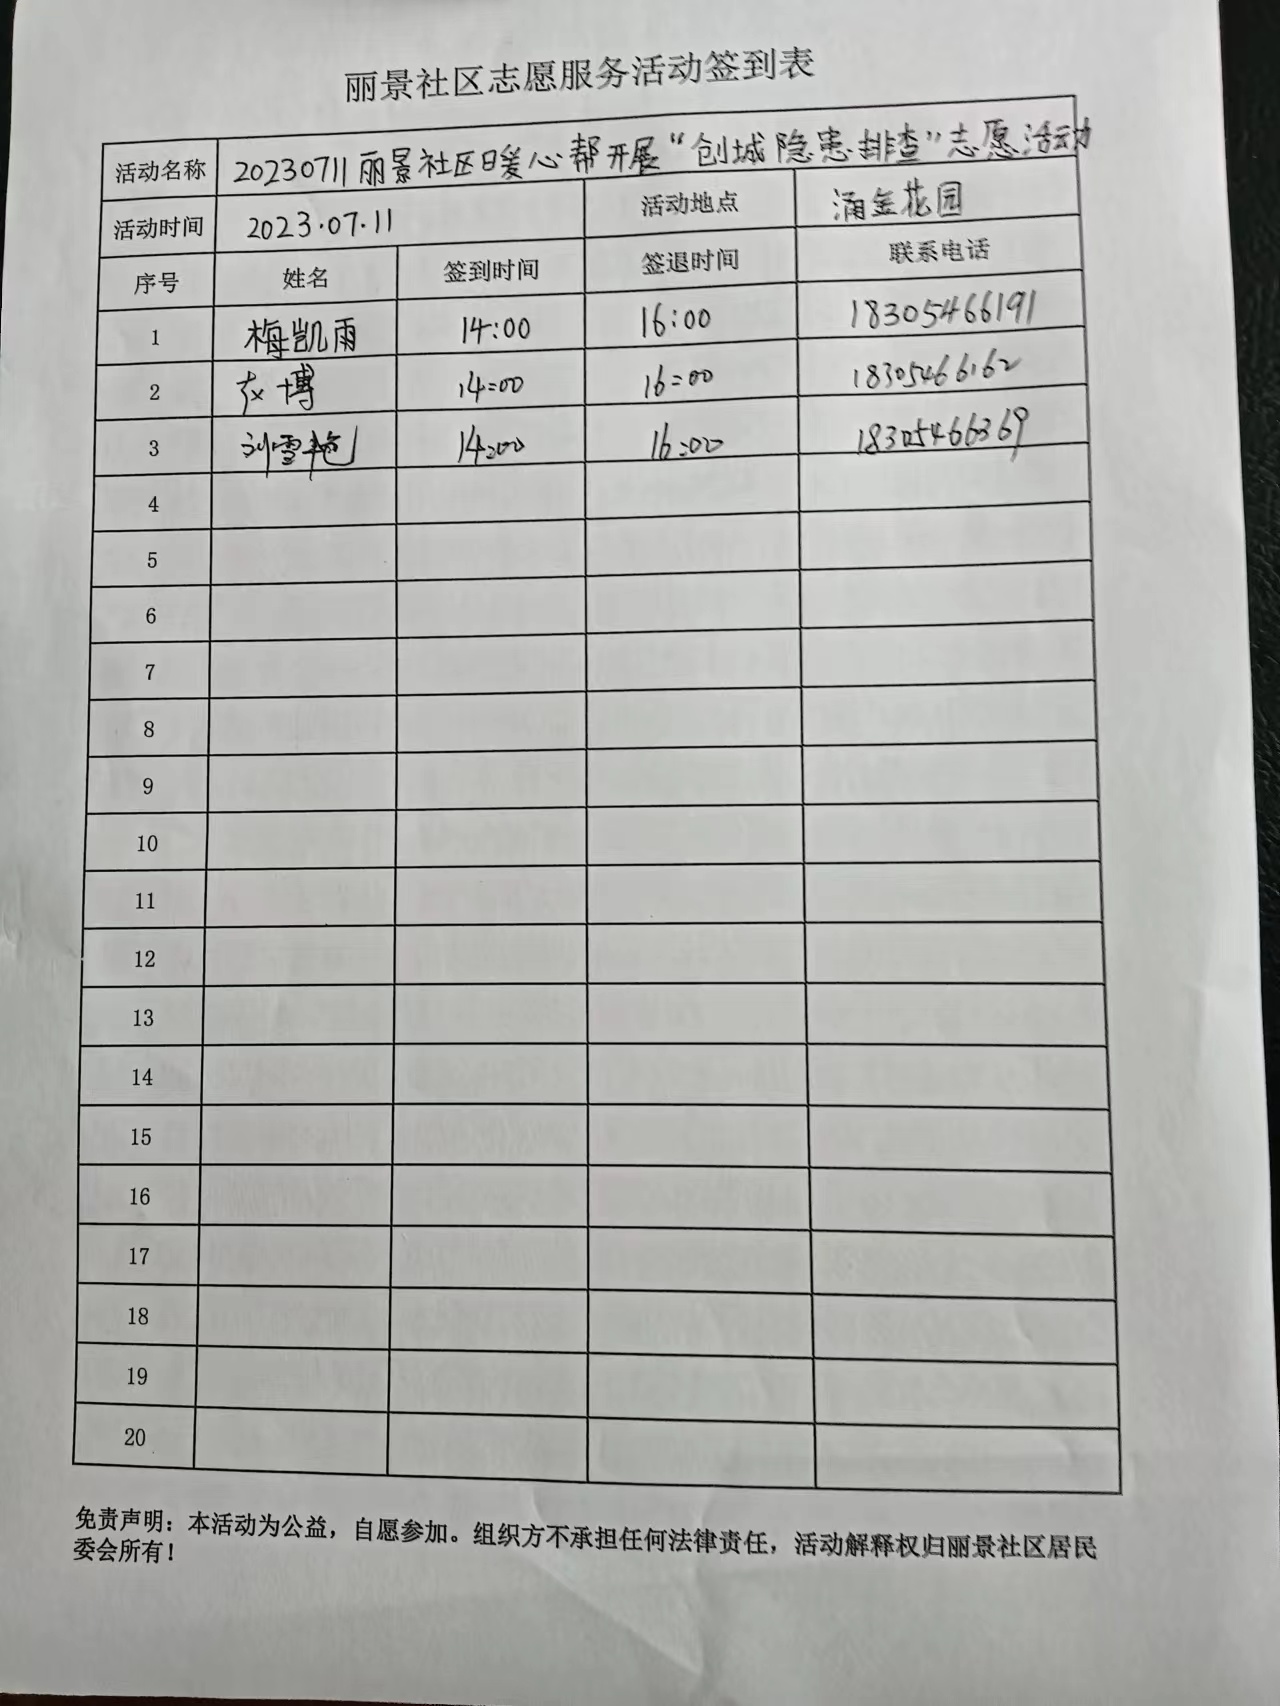 丽景社区志愿服务活动签到表
活动名称 20230711丽景社区暖心帮开展“创城隐患排查”志愿活动
活动时间 2023.07.11 活动地点 涌金花园
序号 姓名 签到时间 签退时间 联系电话
1 梅凯雨 14:00 16:00 18305466191
2 博 14:00 16:00 18305466162
3 刘雪艳 14:00 16:00 18305466369
4
5
6
7
8
9
10
11
12
13
14
15
16
17
18
19
20
免责声明：本活动为公益，自愿参加。组织方不承担任何法律责任，活动解释权归丽景社区居民
委会所有！